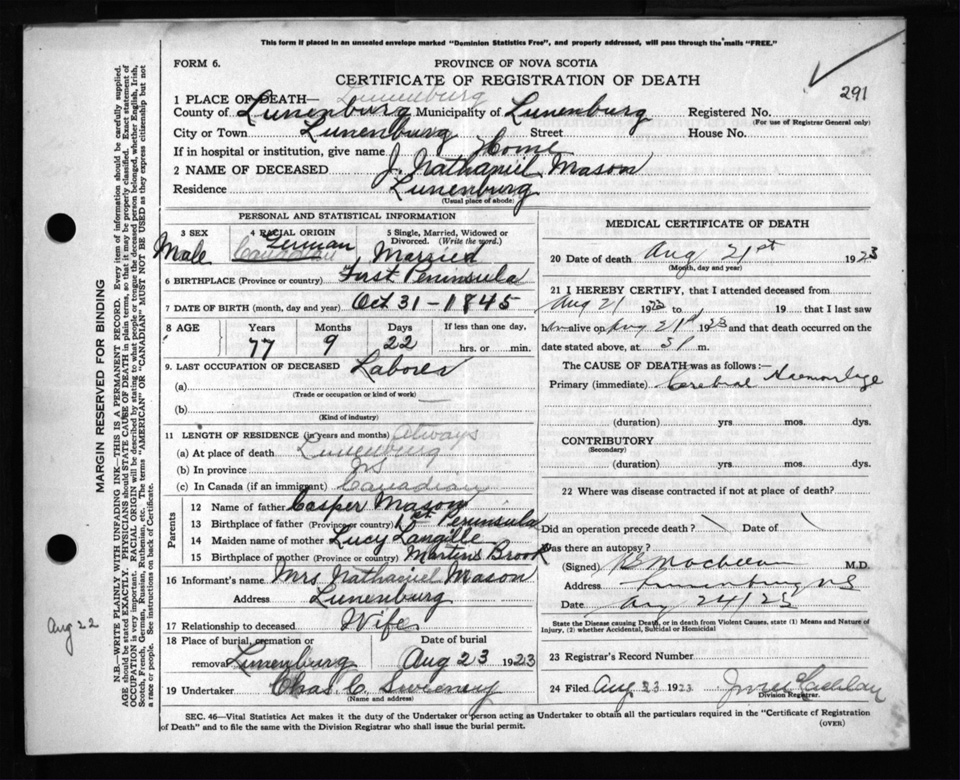 This form if placed in an unsealed envelope marked "Dominion Statistics Free", and properly addressed, will pass through the mails "FREE."
FORM 6.
PROVINCE OF NOVA SCOTIA
CERTIFICATE OF REGISTRATION OF DEATH
291
1 PLACE OF DEATH— Lunenburg
County of Lunenburg Municipality of Lunenburg Registered No.
(For use of Registrar General only)
City or Town Lunenburg Street House No.
If in hospital or institution, give name Home
2 NAME OF DECEASED J. Nathaniel Mason
Residence Lunenburg
(Usual place of abode)
PERSONAL AND STATISTICAL INFORMATION
3 SEX Male
4 RACIAL ORIGIN German
Canadian
5 Single, Married, Widowed or Divorced. (Write the word.)
Married
6 BIRTHPLACE (Province or country) First Peninsula
7 DATE OF BIRTH (month, day and year) Oct 31-1845
8 AGE Years Months Days If less than one day,
77 9 22 hrs. or min.
9. LAST OCCUPATION OF DECEASED Laborer
(a)
(Trade or occupation or kind of work)
(b)
(Kind of industry)
11 LENGTH OF RESIDENCE (in years and months) Always
(a) At place of death Lunenburg
(b) In province NS
(c) In Canada (if an immigrant) Canadian
Parents
12 Name of father Casper Mason
13 Birthplace of father (Province or country) 1st Peninsula
14 Maiden name of mother Lucy Langille
15 Birthplace of mother (Province or country) Martins Brook
16 Informant's name Mrs Nathaniel Mason
Address Lunenburg
17 Relationship to deceased Wife
18 Place of burial, cremation or Date of burial
removal Lunenburg Aug 23 1923
19 Undertaker Chas C. Sweeney
(Name and address)
MEDICAL CERTIFICATE OF DEATH
20 Date of death Aug 21st 1923
(Month, day and year)
21 I HEREBY CERTIFY, that I attended deceased from
Aug 21 1923 to 19 that I last saw
him alive on Aug 21st 1923 and that death occurred on
date stated above, at m.
The CAUSE OF DEATH was as follows:—
Primary (immediate) Cerebral Haemorhage
(duration) yrs mos. dys.
CONTRIBUTORY
(Secondary)
(duration) yrs. mos. dys.
22 Where was disease contracted if not at place of death?
Did an operation precede death? Date of
Was there an autopsy?
(Signed) M.D.
Address Lunenburg NS
Date Aug 24/23
State the Disease causing Death, or in death from Violent Causes, state (1) Means and Nature of Injury, (2) whether Accidental, Suicidal or Homicidal
23 Registrar's Record Number
24 Filed Aug 23 1923
Division Registrar.
SEC. 46—Vital Statistics Act makes it the duty of the Undertaker or person acting as Undertaker to obtain all the particulars required in the "Certificate of Registration of Death" and to file the same with the Division Registrar who shall issue the burial permit.
(OVER)
MARGIN RESERVED FOR BINDING
N.B.—WRITE PLAINLY WITH UNFADING INK—THIS IS A PERMANENT RECORD. Every item of information should be carefully supplied.
AGE should be stated EXACTLY. PHYSICIANS should STATE CAUSE OF DEATH in plain terms, so that it may be properly classified. Exact statement of
OCCUPATION is very important. RACIAL ORIGIN will be described by stating to what people or tongue the deceased person belonged, whether English, Irish,
Scotch, French, German, Russian, Ruthenian, etc. The terms "AMERICAN" OR "CANADIAN" MUST NOT BE USED as they express citizenship but not
a race or people. See instructions on back of Certificate.
Aug 22